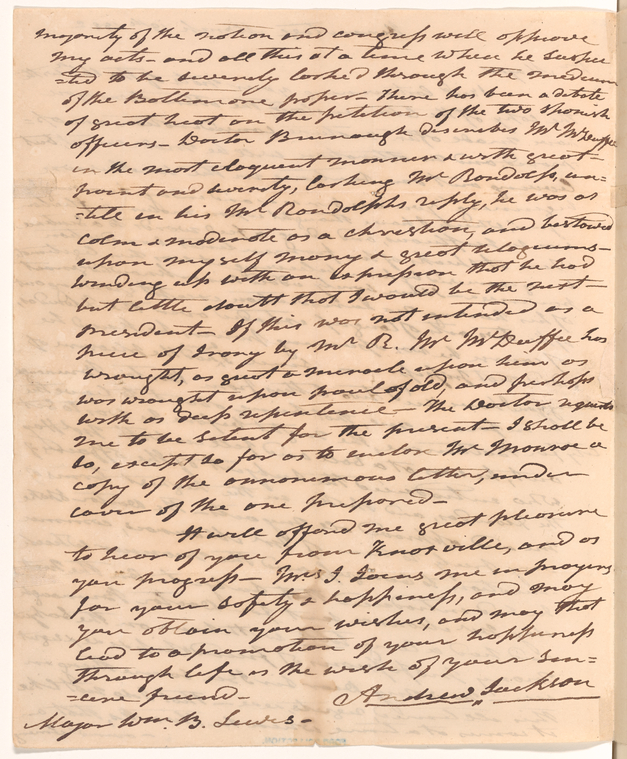 majority of the nation and congress will approve
my acts- and all this at a time when he suspec
=ted to be severely lashed through the medium
of the Baltimore paper- There has been a debate
of great heat on the petition of the two Spanish
officers- Doctor Brunaugh describes Mr McDuffie
in the most eloquent manner & with great
point and severity, lashing Mr Randolph, un=
=till in his Mr Randolphs reply, he was as
calm & moderate as a christian, and bestowed
upon myself many & great elogiums-
winding up with an expression that he had
but little doubt that I would be the next-
President- If this was not intended as a
piece of Irony by Mr R. Mr McDuffee has
wrought, as great a miracle upon him as
was wrought upon paul of old, and perhaps
with as deep repentence- The Doctor requests
me to be silent for the present- I shall be
so, except so far as to enclose Mr Monroe a
copy of the annonimous letter, under
cover of the one prepared-
It will afford me great pleasure
to hear of you from Knoxville, and as
you progress- Mrs J. Joins me in prayers
for your safety & happiness, and may
you obtain your wishes, and may that
lead to a promotion of your happiness
through life is the wish of your sin=
=cere friend-
Andrew Jackson
Major Wm. B. Lewis-